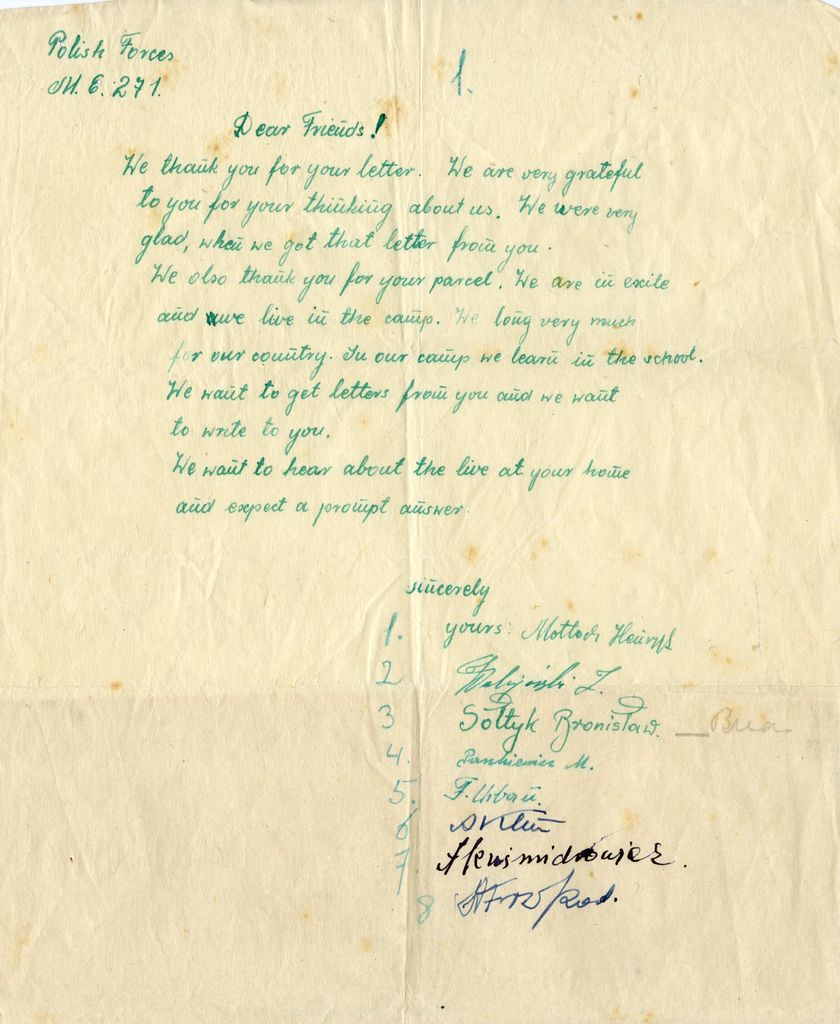 Polish Forces
M. E. 271.
1.
Dear Friends!
We thank you for your letter. We are very grateful
to you for your thinking about us. We were very
glad, when we got that letter from you.
We also thank you for your parcel. We are in exile
and we live in the camp. We long very much
for our country. In our camp we learn in the school.
We want to get letters from you and we want
to write to you.
We want to hear about the live at your home
and expect a prompt answer.
sincerely
1. yours: Henryk
2 Z.
3 Sołtyk Bronisław.
4. Pankiewicz M.
5. F. Urban.
6
7.
8